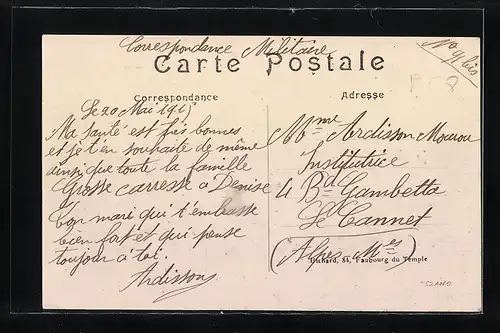 Correspondance Militaire
No 9 bis
Carte Postale
Correspondance
Adresse
Le 20 Mai 191
Ma santé est très bonnes
et je t'en souhaite de même
ainsi que toute la famille
Grosse carresse a Denise
bon mari qui t'embrasse
bien fort et qui pense
toujour a toi.
Ardisson
Mme Ardisson
Institutrice
4 Bd Gambetta
Le Cannet
(Alpes Mes)
Richard, 84, Faubourg du Temple